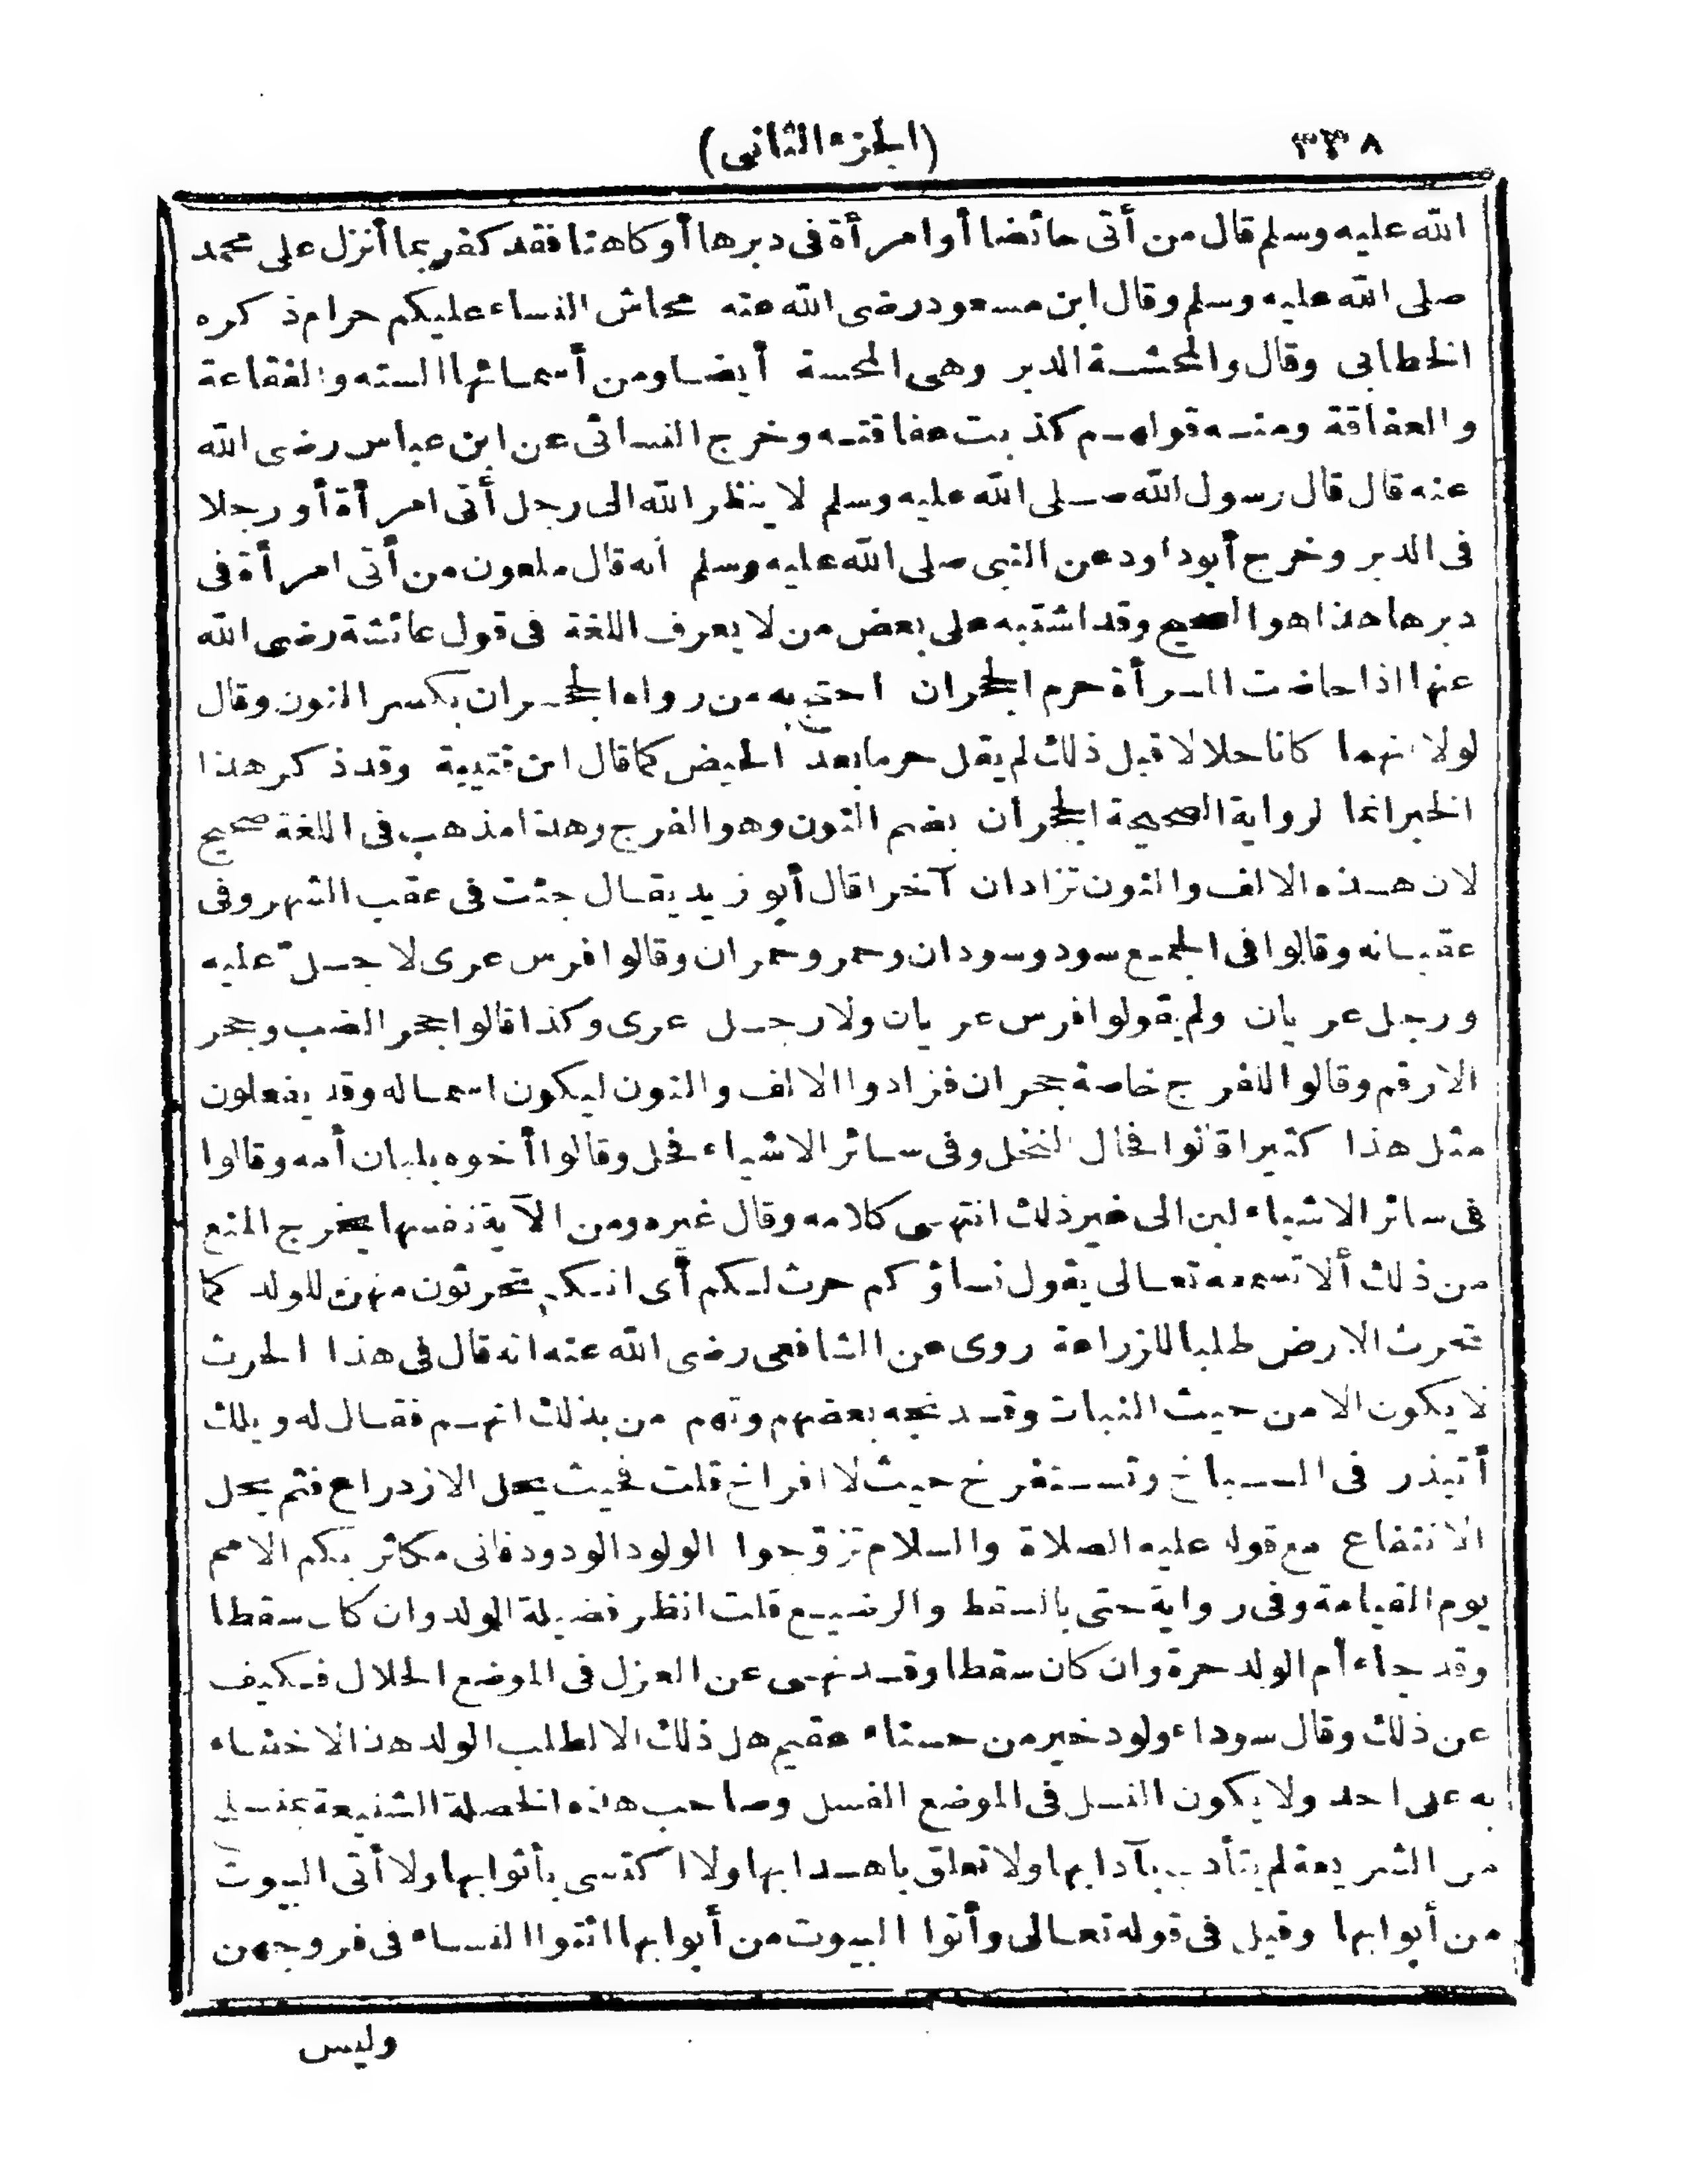 ٣٣٨ (الجزء الثانى)
الله عليه وسلم قال من أتى حائضا أو امرأة فى دبرها أو كاهنا فقد كفر بما أنزل على محمد
صلى الله عليه وسلم وقال ابن مسعود رضى الله عنه محاش النساء عليكم حرام ذكره
الخطابى وقال والمحشة الدبر وهى المحسة أيضا ومن أسمائها السته والفقاعة
والعفاقة ومنه قولهم كذبت عفاقته وخرج النسائى عن ابن عباس رضى الله
عنه قال قال رسول الله صلى الله عليه وسلم لا ينظر الله الى رجل أتى امرأة أو رجلا
فى الدبر وخرج أبو داود عن النبى صلى الله عليه وسلم أنه قال ملعون من أتى امرأة فى
دبرها هذا هو الصحيح وقد اشتبه على بعض من لا يعرف اللغة فى قول عائشة رضى الله
عنها اذا حاضت المرأة حرم الجحران احتج به من رواه الجحران بكسر النون وقال
لولا انهما كانا حلالا قبل ذلك لم يقل حرما بعد الحيض كما قال ابن قتيبة وقد ذكر هذا
الخبر انما لرواية الصحيحة الجحران بضم النون وهو الفرج وهذا مذهب فى اللغة صحيح
لان هذه الالف والنون تزادان آخرا قال أبو زيد يقال جئت فى عقب الشهر وفى
عقبانه وقالوا فى الجمع سود وسودان وحمر وحمران وقالوا فرس عرى لا جل عليه
ورجل عريان ولم يقولوا فرس عريان ولا رجل عرى وكذا قالوا جحر الضب وجحر
الارقم وقالوا للفرج خاصة جحران فزادوا الالف والنون ليكون اسما له وقد يفعلون
مثل هذا كثيرا قالوا فحال النخل وفى سائر الاشياء فحل وقالوا أخوه بلبان أمه وقالوا
فى سائر الاشياء لبن الى غير ذلك انتهى كلامه وقال غيره ومن الآية نفسها يخرج المنع
من ذلك ألا تسمعه تعالى يقول نساؤكم حرث لكم أى انكم تحرثون منهن للولد كما
تحرث الارض طلبا للزراعة روى عن الشافعى رضى الله عنه انه قال فى هذا الحرث
لا يكون الا من حيث النبات وقد نجه بعضهم وتهم من بذلك اتهم فقال له ويلك
أتبذر فى السباخ وتستفرخ حيث لا افراخ قلت فحيث يحل الازدراع فثم يحل
الانتفاع مع قوله عليه الصلاة والسلام تزوجوا الولود الودود فانى مكاثر بكم الامم
يوم القيامة وفى رواية حتى بالسقط والرضيع قلت انظر فضيلة الولد وان كان سقطا
وقد جاء أم الولد حرة وان كان سقطا وقد نهى عن العزل فى الموضع الحلال فكيف
عن ذلك وقال سوداء ولود خير من حسناء عقيم هل ذلك الا لطلب الولد هذا لا خشاء
به على احد ولا يكون النسل فى الموضع الفسل وصاحب هذه الخصلة الشنيعة بمنسل
من الشريعة لم يتأدب بآدابها ولا تعلق باهدابها ولا اكتسى بأثوابها ولا أتى البيوت
من أبوابها وقيل فى قوله تعالى وأتوا البيوت من أبوابها ائتوا النساء فى فروجهن
وليس